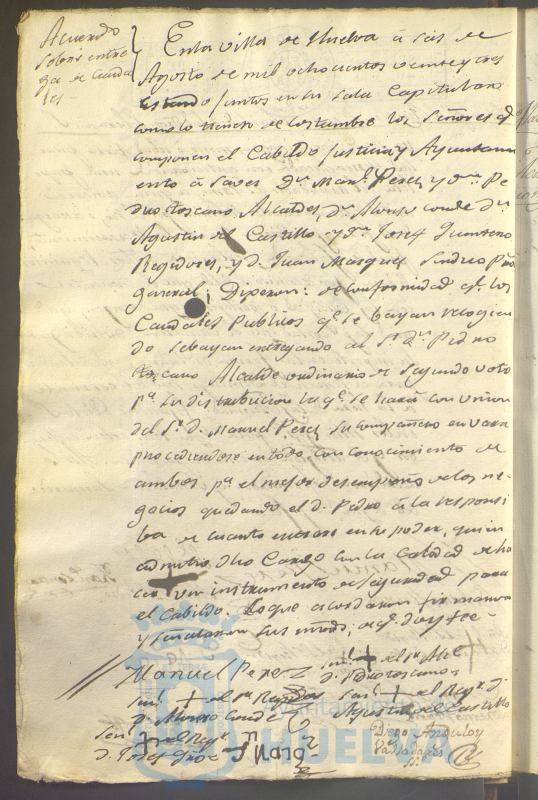 Acuerdo
sobre entre
ga de Cauda
les
En la villa de Huelva á seis de
Agosto de mil ochocientos veinte y tres
Estando juntos en su sala Capitular
como lo tienen de costumbre los Señores qe
componen el Cabildo Justicia y Ayuntami
ento á saver Dn Manl Perez, y dn Pe
dro toscano, Alcaldes, dn Alonso conde dn
Agustin del Castillo y dn Josef Quintero
Regidores, y D. Juan Marquez Sindico
general; Digeron: de conformidad qe los
Caudales Publicos qe se bayan recogien
do se bayan entregando al Sr Dn Pedro
toscano Alcalde ordinario de segundo voto
pa su distribucion la qe se hará con union
del Sr D. Manuel Perez su compañero en vara
procediendose en todo con conocimiento de
ambos pa el mejor desempeño de los ne-
gocios quedando el D. Pedro á la responsi
ba de cuanto entrare en su poder, quien
admitio dho Cargo con la calidad de ha
cer un instrumento de seguridad para
el Cabildo. Lo que acordaron firmaron
y señalaron sus mrds; de qe doy fee-
Manuel Perez señl + del Sr Alce
D. Pedro toscano
señl + del Sr Regidor señl + del Regr D.
D. Alonso Conde Agustin del Castillo
señl + del Regr Diego
D. Josef Marqz
HUELVA